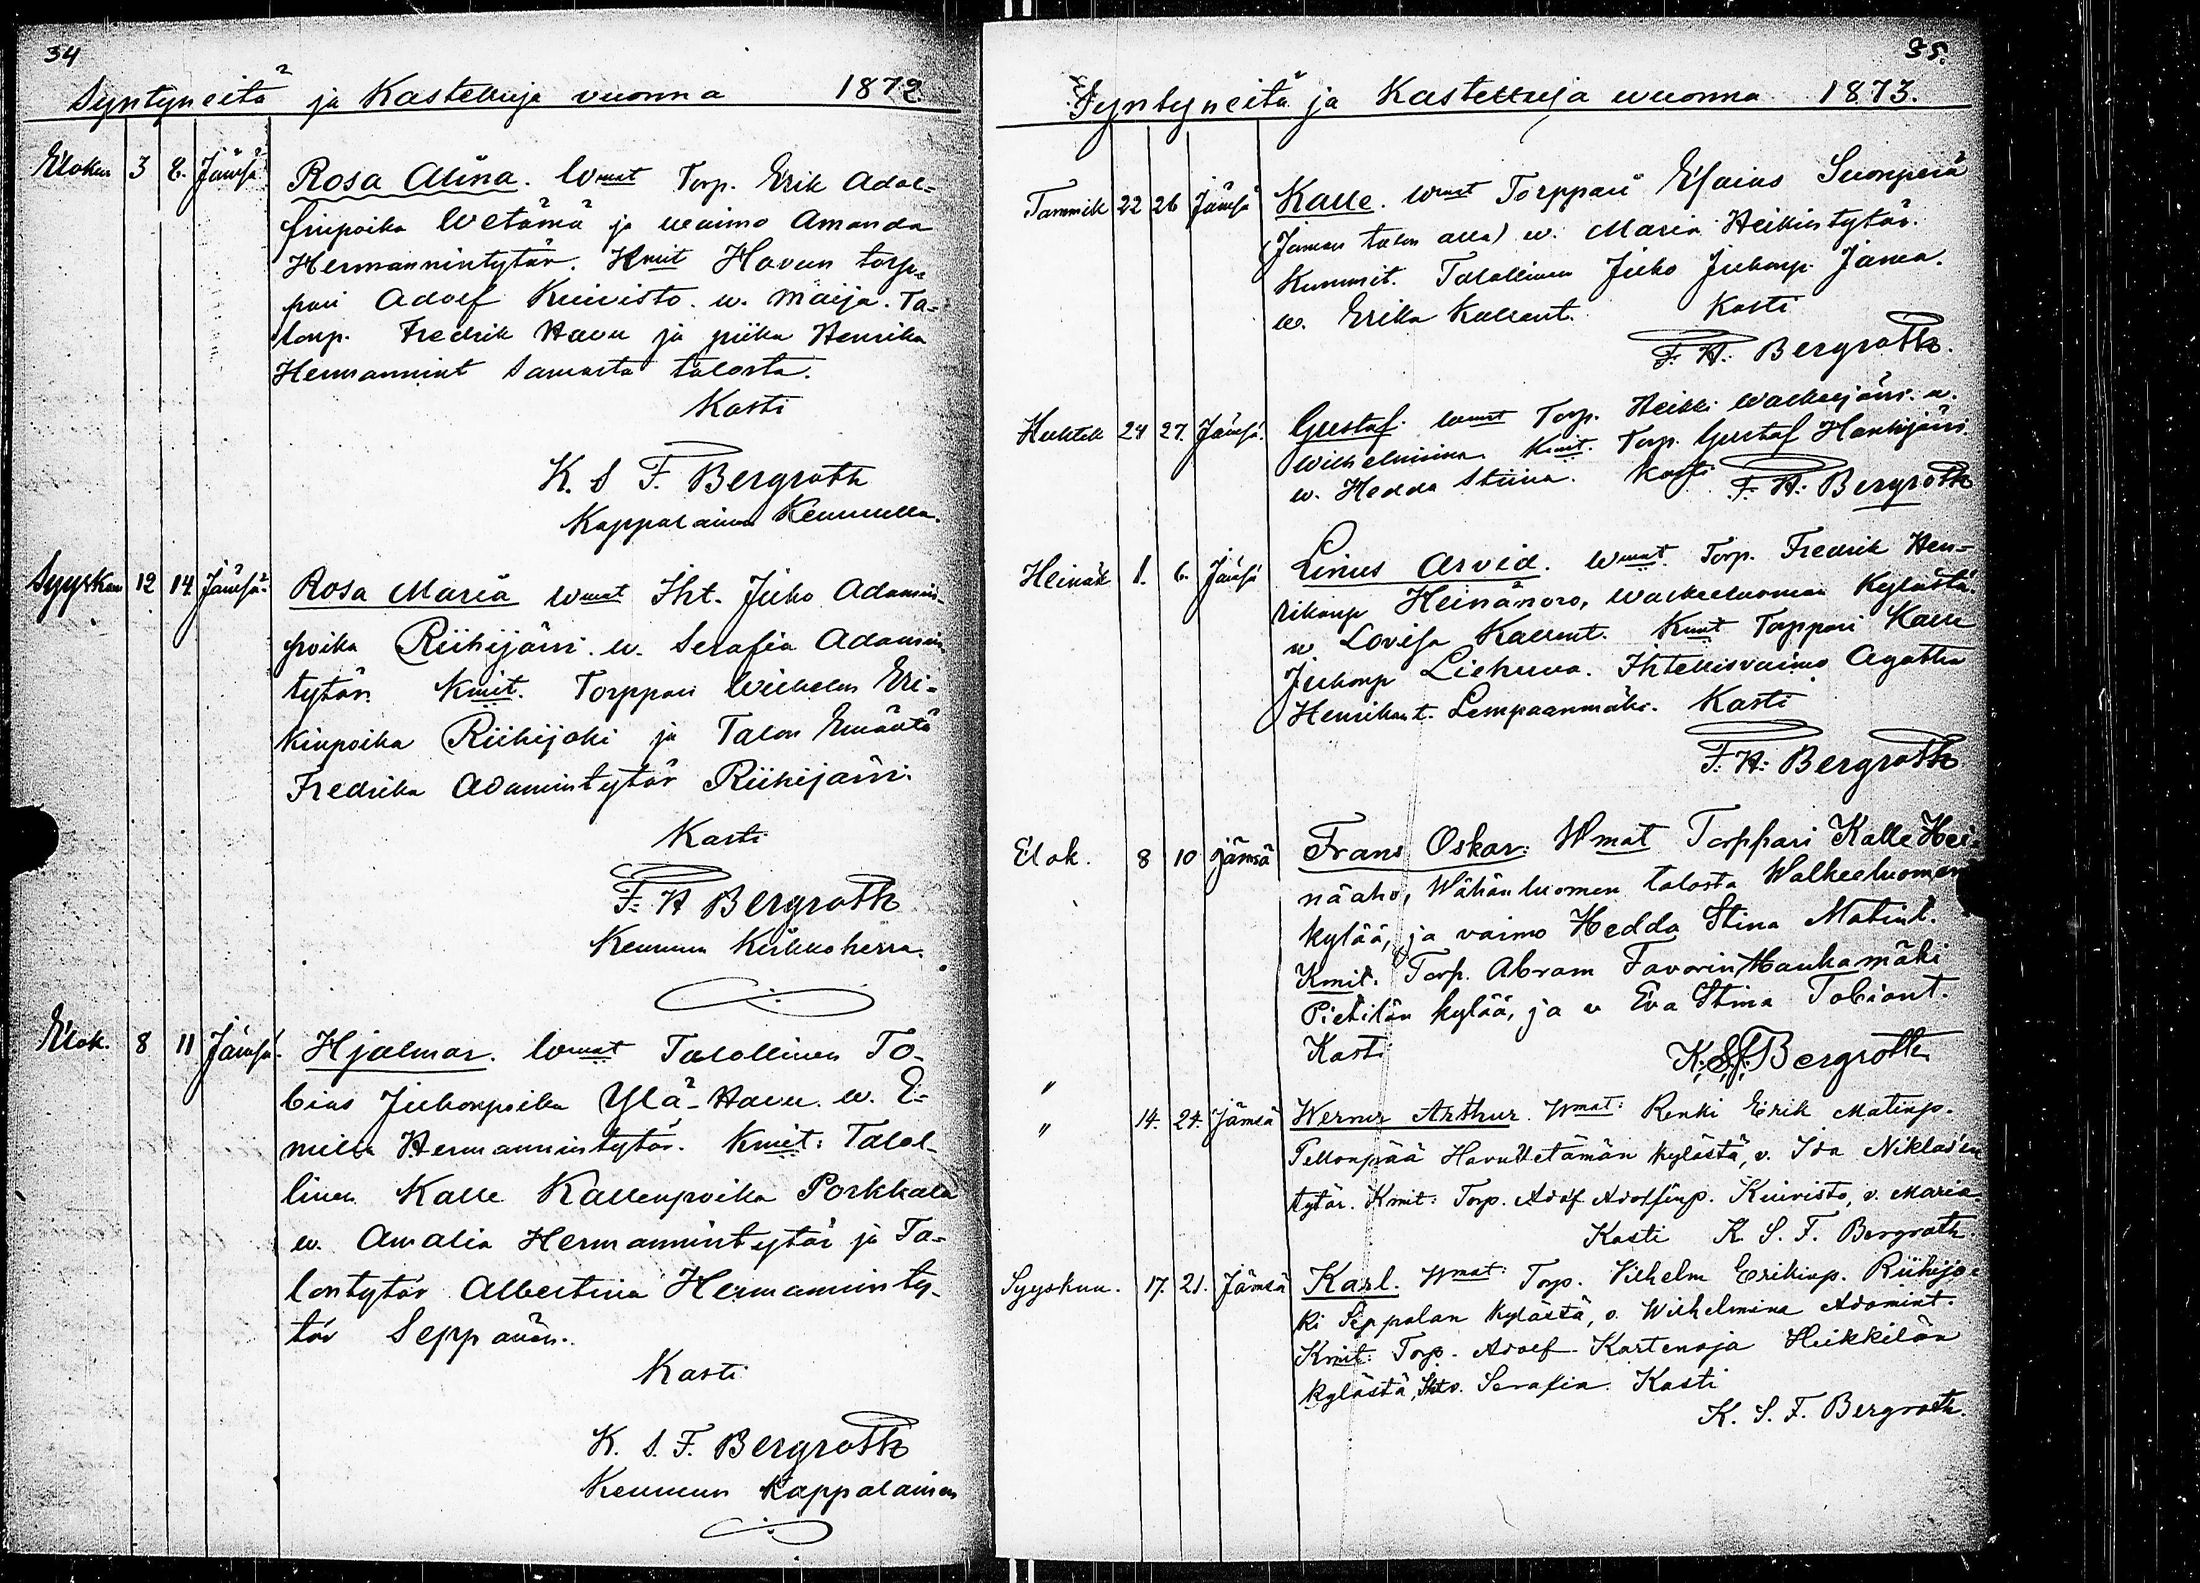 34
Syntyneitä ja Kastettuja vuonna 1872
Elokuu 3 8. Jämsä Rosa Alina. Wmat Torp. Erik Adol-
finpoika Wetämä ja waimo Amanda
Hermannintytär. Kmit Havun torp-
pari Adolf Kuivisto. w. Maija. Ta-
lonp. Fredrik Havu ja piika Henrika
Hermannint samasta talosta.
Kasti
K. S F. Bergroth
Kappalainen Keuruulla.
Syyskuu 12 14 Jämsä Rosa Maria Wmat Iht. Juho Adamin-
poika Riihijärvi. w. Serafia Adamin
tytär. Kmit. Torppari Wilhelm Eri-
kinpoika Riihijoki ja Talon Emäntä
Fredrika Adamintytär Riihijärvi.
Kasti
F. H Bergroth
Keuruun Kirkkoherra.
Elok. 8 11 Jämsä. Hjalmar. Wmat Talollinen To-
bias Juhonpoika Ylä-Havu. w. E-
milia Hermannintytär. Kmit: Talol-
linen Kalle Kallenpoika Porkkala
w. Amalia Hermannintytär ja Ta-
lontytär Albertina Hermanninty-
tär Seppänen.
Kasti
K. S. F. Bergroth
Keuruun Kappalainen
35.
Syntyneitä ja Kastettuja wuonna 1873.
Tammik 22 26 Jämsä Kalle. Wmat Torppari Esaias Suonperä
(Jaman talon alla) w. Maria Heikintytär.
Kummit. Talollinen Juho Juhonp. Jama.
w. Erika Kallent. Kasti
F. H. Bergroth.
Huhtik 24 27. Jämsä. Gustaf. Wmat Torp. Heikki Walkeejärvi. w.
Wilhelmiina. Kmit. Torp. Gustaf Hankijärvi.
w. Hedda Stiina. Kasti F. H. Bergroth
Heinäk 1. 6. Jämsä Linus Arvid. Wmat. Torp. Fredrik Hen-
rikinp Heinänoro, Walkeeluoman Kylästä.
w Lovisa Kallent. Kmit Torppari Kalle
Juhonp Liehuva. Ihtellisvaimo Agatha
Henrikint. Lempaanmäki. Kasti
F. H. Bergroth
Elok. 8 10 Jämsä Frans Oskar: Wmat Torppari Kalle Hei-
näaho, Wähänluomen talosta Walkeeluoman
kylää, ja vaimo Hedda Stina Matint.
Kmit. Torp. Abram Favorin Haukamäki
Pietilän kylää, ja w Eva Stina Tobiant.
Kasti K. S. F. Bergroth
"
" 14. 24. Jämsä Werner Arthur. Wmat: Renki Erik Matinp.
Pellonpää HavuWetämän kylästä, v. Ida Niklas'en
tytär. Kmit: Torp. Adolf Adolfinp. Kuivisto, v. Maria
Kasti K. S. F. Bergroth.
Syyskuu. 17. 21. Jämsä Karl. Wmat: Torp. Vilhelm Erikinp. Riihijo-
ki Seppolan kylästä, v. Wilhelmina Adamint.
Kmit: Torp. Adolf Kartenoja Heikkilän
kylästä, Iht v. Serafia. Kasti
K. S. F. Bergroth.